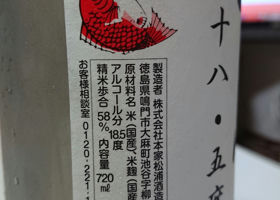 十八・五度
製造者 株式会社本家松浦酒造
徳島県鳴門市大麻町池谷字柳
原材料名 米(国産)、米麹(国産
アルコール分 18.5度
精米歩合 58% 内容量 720ml
お客様相談室 0120・221・1